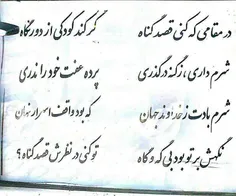 در مقامی که کنی قصد گناه گر کند کودکی از دور نگاه
شرم داری، ز گنه درگذری پرده عفت خود را ندری
شرم بادت ز خداوند جهان که بود واقف اسرار نهان
نگهش بر تو بود بی گه و گاه تو کنی در نظرش قصد گناه؟